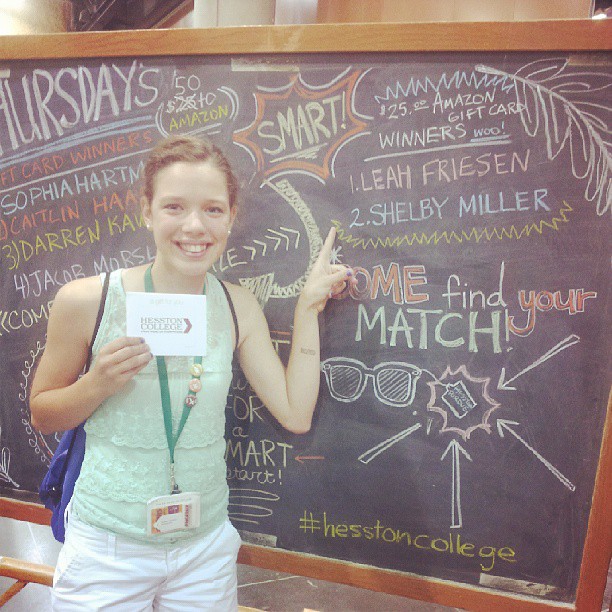 HURSDAY'S
50
$25 to
AMAZON
FT CARD WINNERS
SOPHIA HARTN
2) CAITLIN HAA
3) DARREN KAU
4) JACOB MORS
SMART!
$25.00 AMAZON
GIFT CARD
WINNERS woo!
1. LEAH FRIESEN
2. SHELBY MILLER
OME find your
MATCH!
HESSTON
COLLEGE
FOR
a
MART
start!
#hesstoncollege